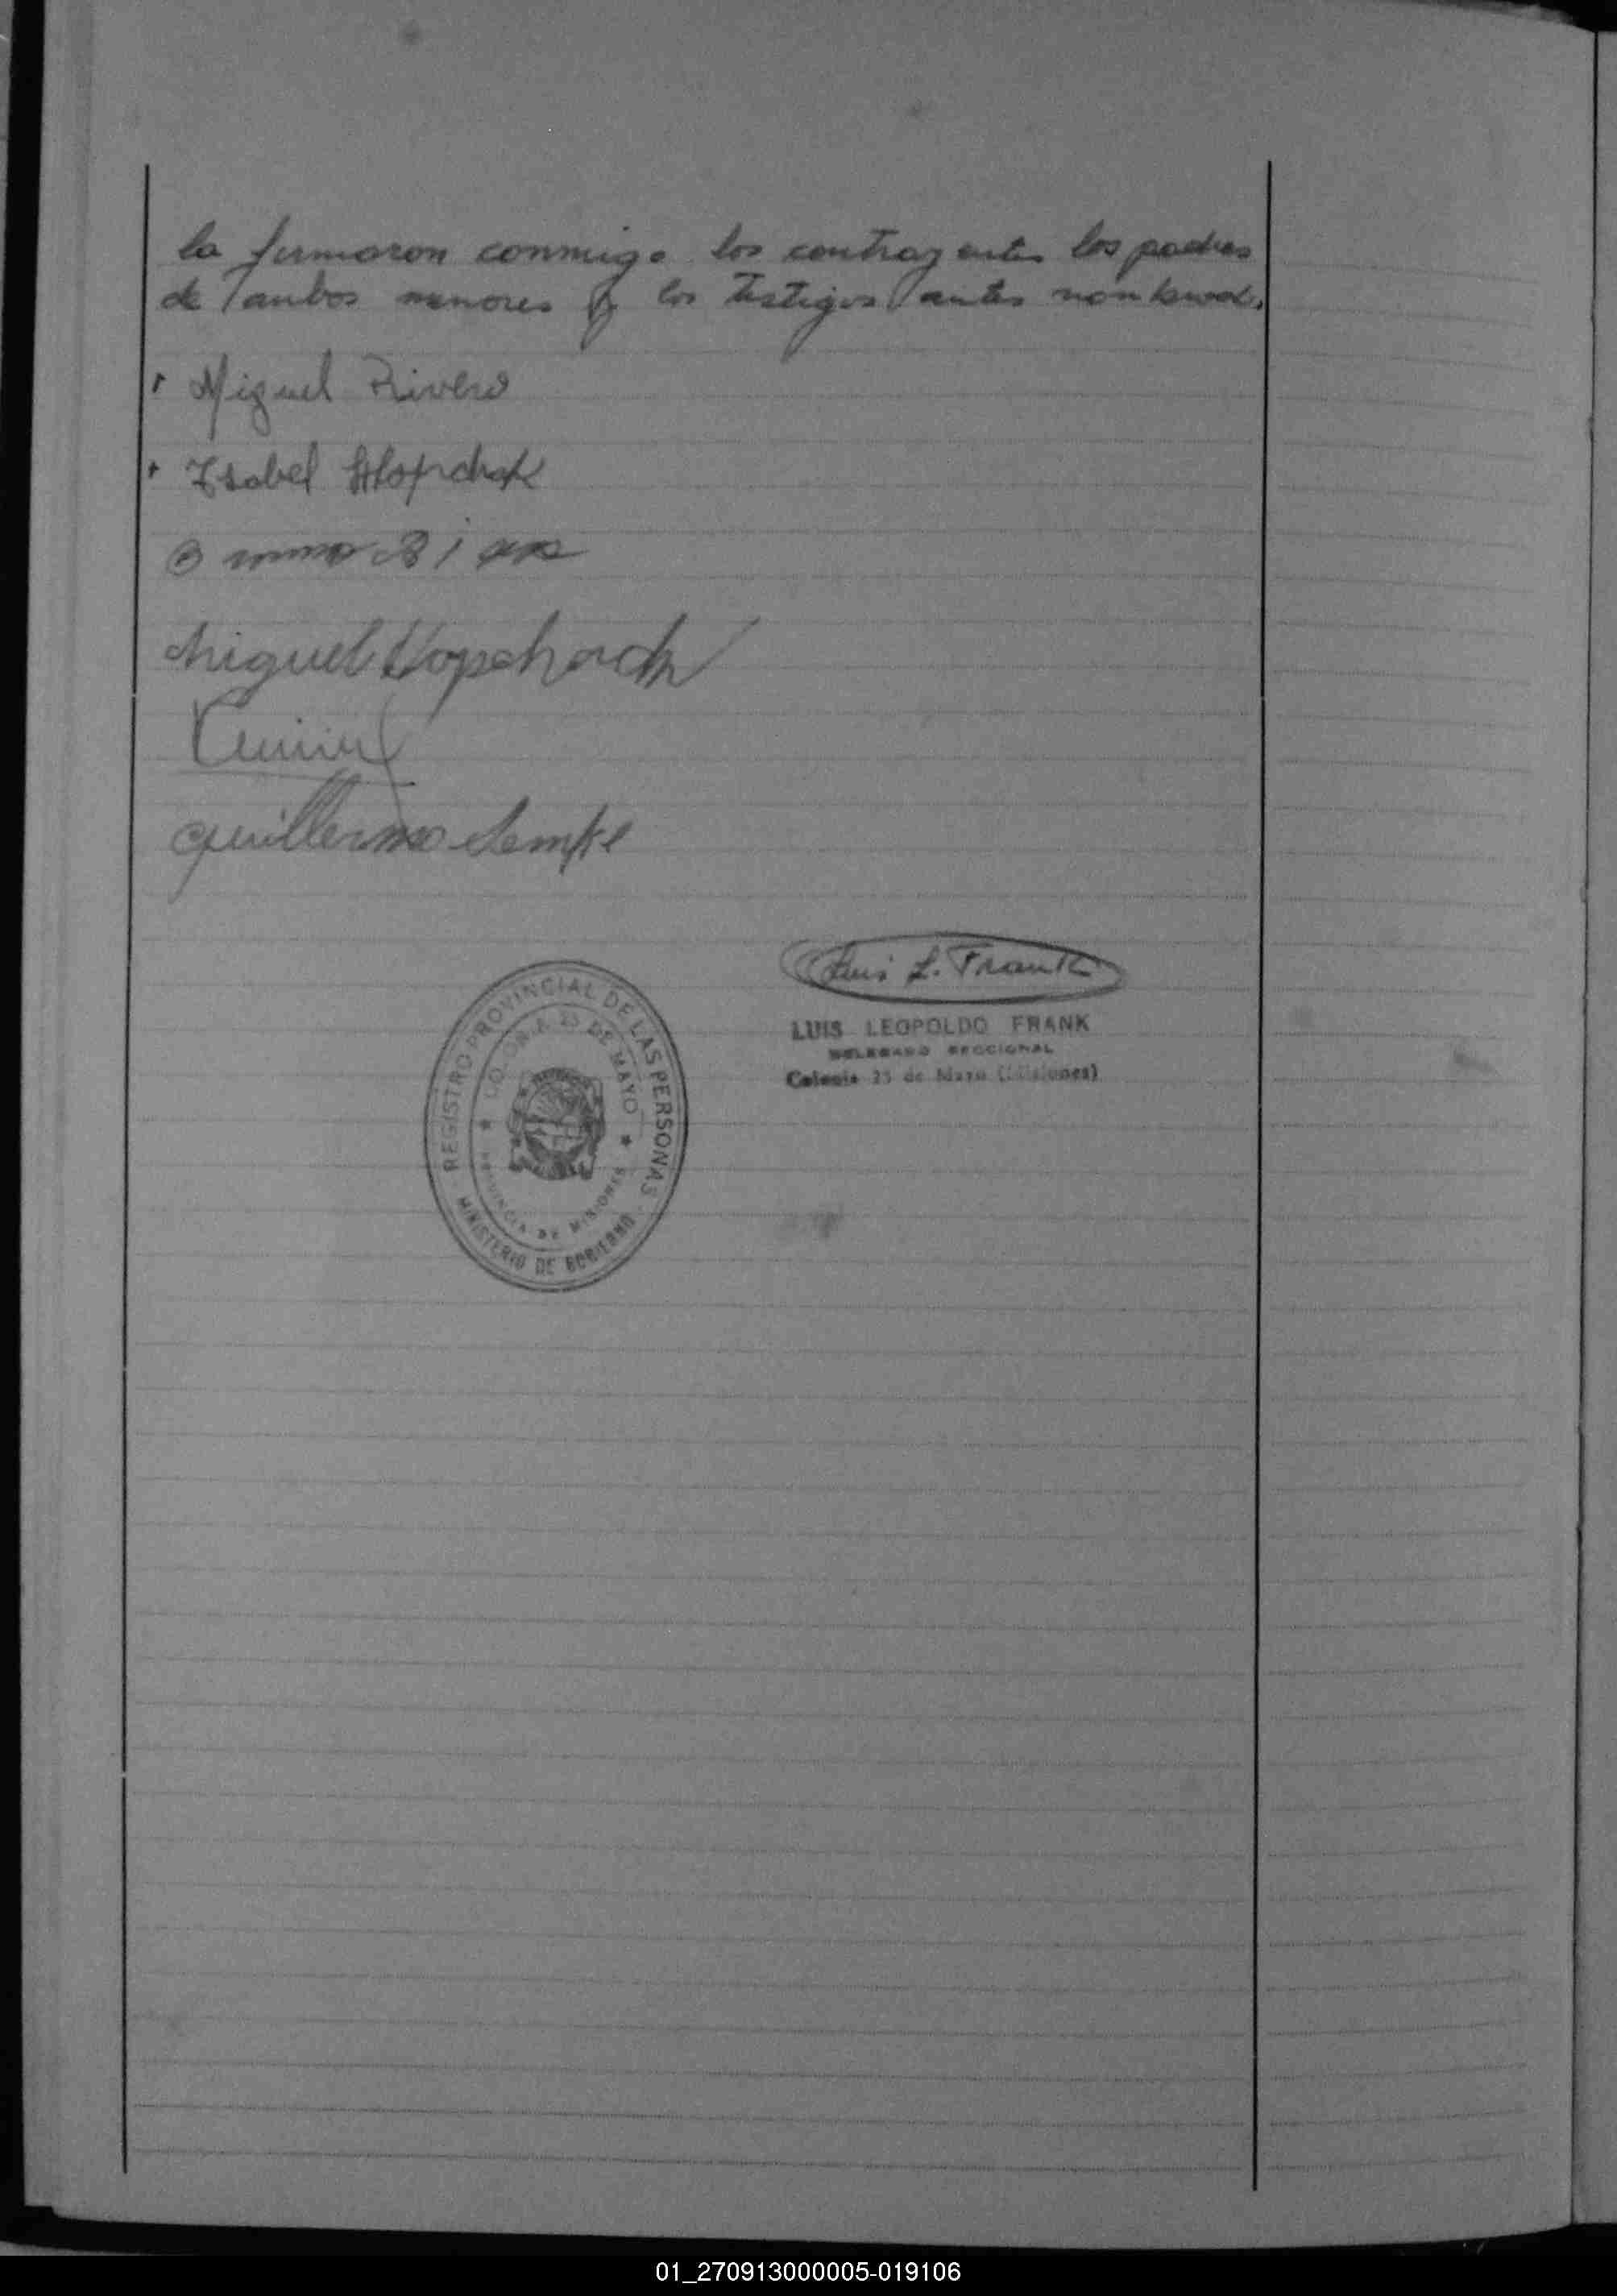 la firmaron conmigo los contrayentes los padres
de ambos menores y los testigos antes nombrad.
Miguel Rivero
Isabel Hopchak
Miguel Hopchach
Guillermo Lemke
Luis L. Frank
LUIS LEOPOLDO FRANK
DELEGADO SECCIONAL
Colonia 25 de Mayo (Misiones)
REGISTRO PROVINCIAL DE LAS PERSONAS
COLONIA 25 DE MAYO
PROVINCIA DE MISIONES
MINISTERIO DE GOBIERNO
01_270913000005-019106